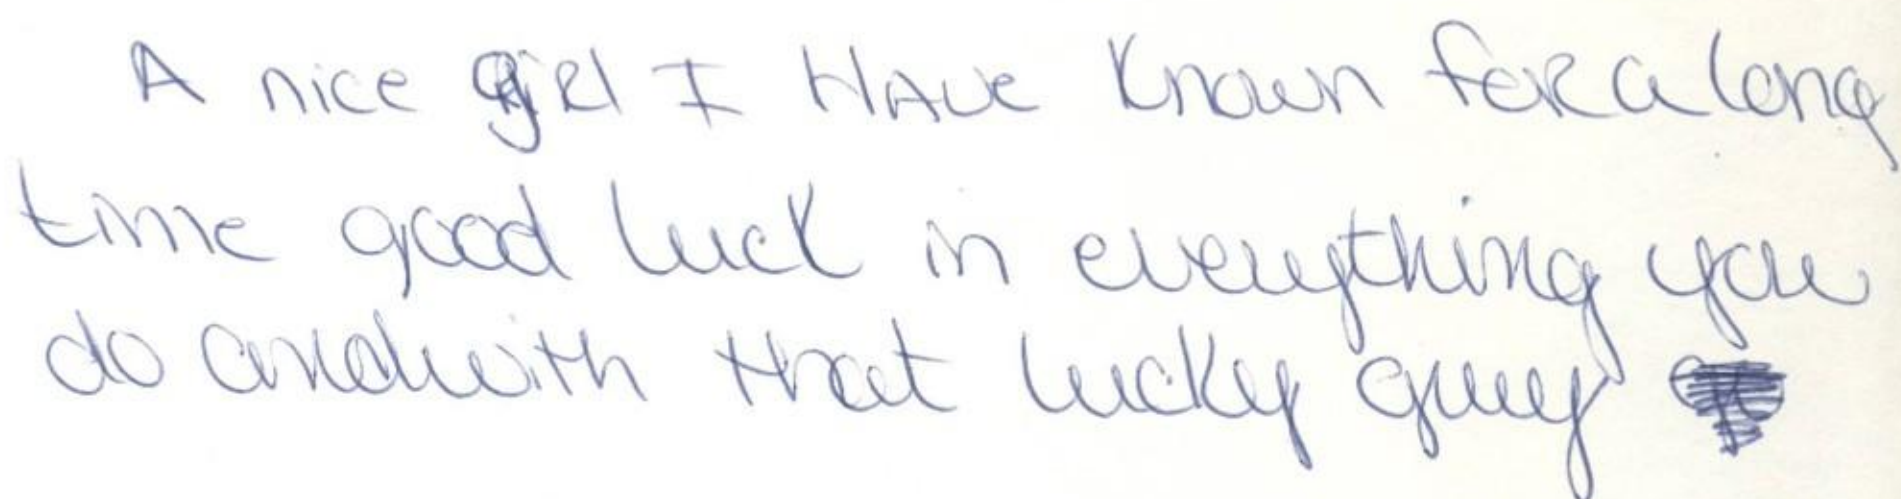 A nice girl I HAVE Known for a long
time good luck in everything you
do and with that lucky guy